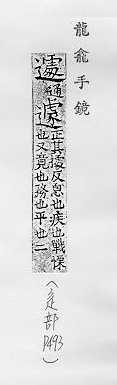 龍龕手鏡
遽俗通遽正其據反急也疾也戰慄
也又竟也務也平也二
（辵部 P493）